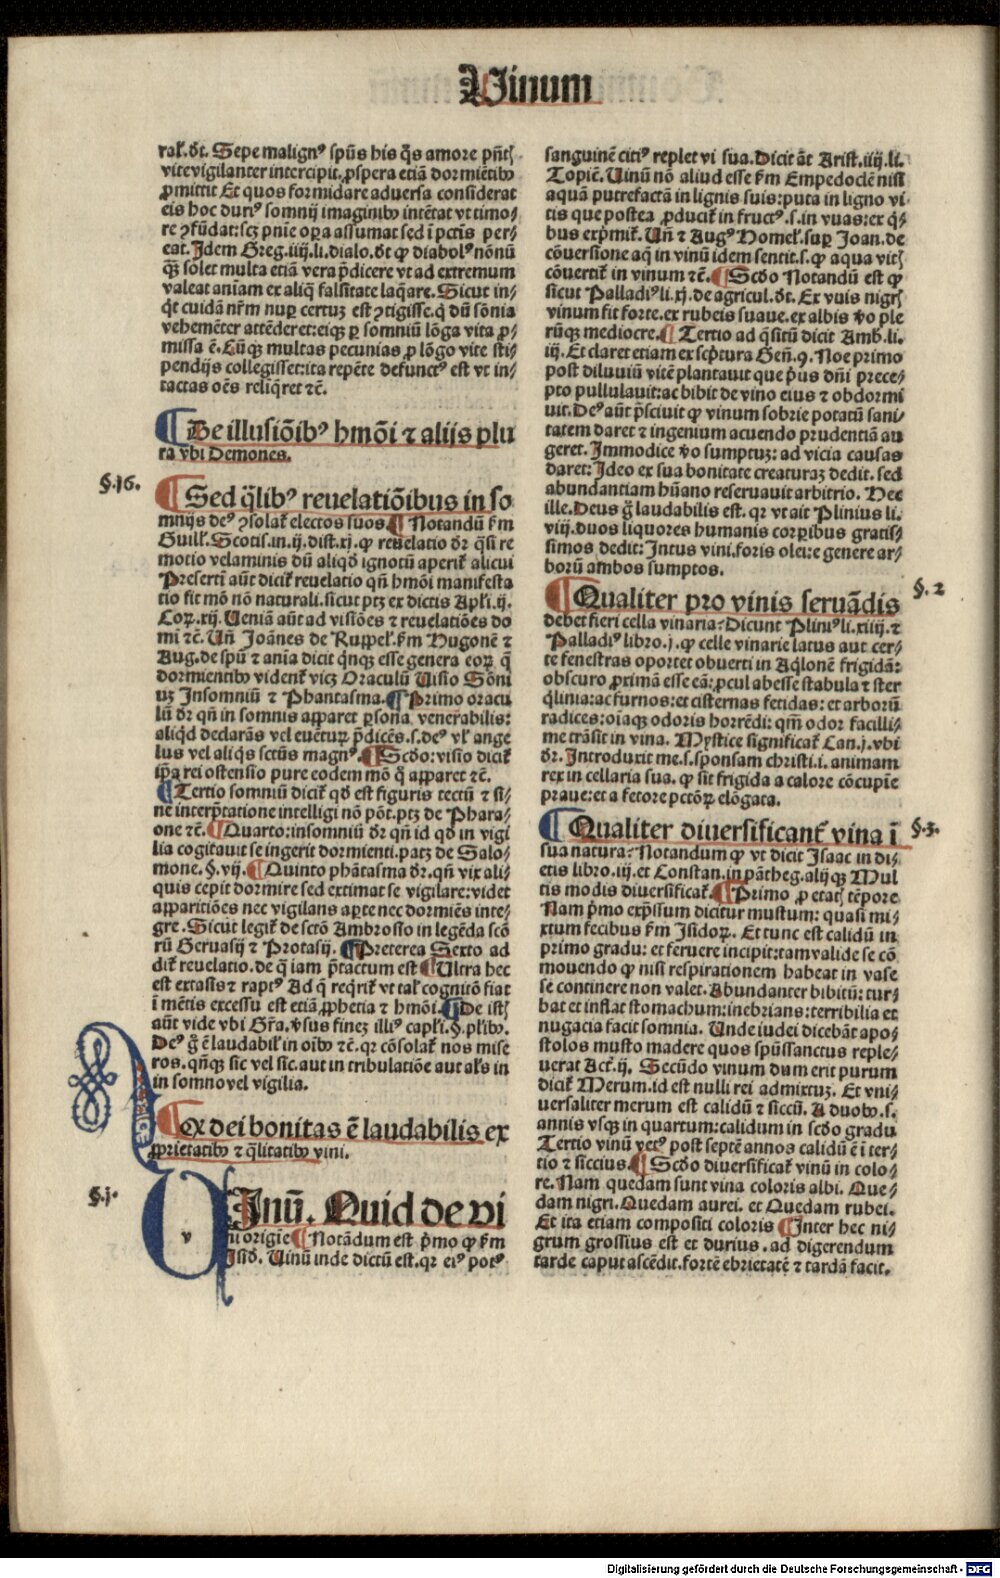 Vinum
ral̄. d̄t. Sepe malignꝰ sp̄us his q̄s amore pn̄tꝭ
vite vigilanter intercipit, ꝓspera etiā dormiētibꝰ
ꝓmittit Et quos formidare aduersa considerat
eis hoc duriꝰ somnij imaginibꝰ intētat vt timo⸗
re ꝯfūdat: scꝫ pn̄ie oꝑa assumat sed ī pctīs per⸗
eat. Jdem Greg. iiij. li. dialo. d̄t ꝙ diabolꝰ nōnū
q̄ꝫ solet multa etiā vera p̄dicere vt ad extremum
valeat aniam ex aliq̄ falsitate laq̄are. Sicut in⸗
q̄t cuidā nr̄m nuꝑ certuꝫ est ꝯtigisse. q̄ dū sōnia
vehemēter attēderet: eiqꝫ ꝑ somniū lōga vita ꝓ⸗
missa ē. Cūqꝫ multas pecunias ꝓ lōgo vite sti⸗
pendijs collegisset: ita repēte defunctꝰ est vt in⸗
tactas oēs reliq̄ret ⁊c̄.
¶ De illusiōibꝰ hmōi ⁊ alijs plu
ra vbi Demones.
§.16.
¶ Sed q̄libꝰ reuelatiōibus in so
mnijs deꝰ ꝯsolat̄ electos suos ¶ Notandū ẜm
Guill̄. Scotis. in. ij. dist. xj. ꝙ reuelatio d̄r q̄si re
motio velaminis dū aliqd̄ ignotū aperit̄ alicui
Presertī aūt dicit̄ reuelatio qn̄ hmōi manifesta
tio fit mō nō naturali. sicut ptꝫ ex dictis Apl̄i. ij.
Coꝝ. xij. Veniā aūt ad visiōes ⁊ reuelatiōes do
mi ⁊c̄. Un̄ Joānes de Rupel̄. ẜm Hugonē ⁊
Aug. de spū ⁊ anīa dicit q̄nqꝫ esse genera eoꝝ q̄
dormientibꝰ vident̄ vicꝫ Oraculū Uisio Sōni
uꝫ Jnsomniū ⁊ Phantasma. ¶ Primo oracu
lū d̄r qn̄ in somnis apparet ꝑsona venerabilis:
aliqd̄ declarās vel euētuꝝ p̄dicēs. s. deꝰ vl̄ ange
lus vel aliq̄s sctūs magnꝰ. ¶ Scd̄o: visio dicit̄
ip̄a rei ostensio pure eodem mō q̄ apparet ⁊c̄.
¶ Tertio somniū dicit̄ qd̄ est figuris tectū ⁊ si⸗
ne interp̄tatione intelligi nō pōt. ptꝫ de Phara⸗
one ⁊c̄. ¶ Quarto: insomniū d̄r qn̄ id qd̄ in vigi
lia cogitauit se ingerit dormienti. patꝫ de Salo⸗
mone. §. vij. ¶ Quinto phātasma d̄r. qn̄ vix ali⸗
quis cepit dormire sed extimat se vigilare: videt
apparitiōes nec vigilans aꝑte nec dormiēs inte⸗
gre. Sicut legit̄ de sctō Ambrosio in legēda scō
rū Geruasij ⁊ Protasij. ¶ Preterea Sexto ad
dit̄ reuelatio. de q̄ iam p̄tactum est ¶ Ultra hec
est extasis ⁊ raptꝰ Ad q̄ req̄rit̄ vt tal̄ cognitō fiat
ī mētis excessu est etiā ꝓphetia ⁊ hmōi. ¶ De istꝭ
aūt vide vbi Gr̄a. v̄sus fineꝫ illiꝰ capl̄i. §. pl̄ibꝰ.
Deꝰ g̊ ē laudabil̄ in oībꝰ ⁊c̄. qꝛ cōsolat̄ nos mise
ros. qn̄qꝫ sic vel sic. aut in tribulatiōe aut al̄s in
in somno vel vigilia.
¶ Ex dei bonitas ē laudabilis ex
ꝓprietatibꝰ ⁊ q̄litatibꝰ vini.
§.j.
VJnū. Quid de vi
ni origīe ¶ Notādum est p̄mo ꝙ ẜm
Jsid̄. Uinū inde dictū est. qꝛ eiꝰ potꝰ
sanguinē citiꝰ replet vi sua. Dicit āt Arist. iiij. li.
Topic̄. Uinū nō aliud esse ẜm Empedoclē nisi
aquā putrefactā in lignis suis: puta in ligno vi⸗
tis que postea ꝓducit̄ in fructꝰ. s. in vuas: ex q̄⸗
bus exp̄mit̄. Un̄ ⁊ Augꝰ Homel̄. suꝑ Joan. de
cōuersione aq̄ in vinū idem sentit. s. ꝙ aqua vitꝭ
cōuertit̄ in vinum ⁊c̄. ¶ Scd̄o Notandū est ꝙ
sicut Palladiꝰ li. xj. de agricul. d̄t. Ex vuis nigrꝭ
vinum fit forte. ex rubeis suaue. ex albis v̄o ple
rūqꝫ mediocre. ¶ Tertio ad q̄sitū dicit Amb. li.
iij. Et claret etiam ex scp̄tura Gen̄. 9. Noe primo
post diluuiū vitē plantauit que p̄us dn̄i prece⸗
pto pullulauit: ac bibit de vino eius ⁊ obdormi
uit. Deꝰ aūt p̄sciuit ꝙ vinum sobrie potatū sani⸗
tatem daret ⁊ ingenium acuendo prudentiā au
geret. Jmmodice v̄o sumptuꝫ: ad vicia causas
daret: Jdeo ex sua bonitate creaturaꝫ dedit. sed
abundantiam hūano reseruauit arbitrio. Hec
ille. Deus g̊ laudabilis est. qꝛ vt ait Plinius li.
viij. duos liquores humanis corꝑibus gratis⸗
simos dedit: Jntus vini. foris olei: e genere ar⸗
borū ambos sumptos.
§. 2
¶ Qualiter pro vinis seruādis
debet fieri cella vinaria? Dicunt Pliniꝰ li. xiiij. ⁊
Palladiꝰ libro. j. ꝙ celle vinarie latus aut cer⸗
te fenestras oportet obuerti in Aq̄lonē frigidā:
obscuro ꝓximā esse eā: ꝓcul abesse stabula ⁊ ster
q̄linia: ac furnos: et cisternas fetidas: et arborū
radices: oīaqꝫ odoris horrēdi: qm̄ odor facilli⸗
me trāsit in vina. Mystice significat̄ Can. j. vbi
d̄r. Jntroduxit me. s. sponsam christi. i. animam
rex in cellaria sua. ꝙ sit frigida a calore cōcupīe
praue: et a fetore pctōꝝ elōgata.
§.3.
¶ Qualiter diuersificant̄ vina ī
sua natura? Notandum ꝙ vt dicit Jsaac in di⸗
etis libro. iij. et Constan. in pātheg. alijqꝫ Mul
tis modis diuersificat̄. ¶ Primo ꝓ etatꝭ tēpore
Nam p̄mo exp̄ssum dicitur mustum: quasi mi⸗
xtum fecibus ẜm Jsidoꝝ. Et tunc est calidū in
primo gradu: et feruere incipit: tam valide se cō
mouendo ꝙ nisi respirationem habeat in vase
se continere non valet. Abundanter bibitū: tur⸗
bat et inflat stomachum: inebrians: terribilia et
nugacia facit somnia. Unde iudei dicebāt apo⸗
stolos musto madere quos spūssanctus reple⸗
uerat Act̄. ij. Secūdo vinum dum erit purum
dicit̄ Merum. id est nulli rei admixtuꝫ. Et vni⸗
uersaliter merum est calidū ⁊ siccū. A duobꝰ. s.
annis vsqꝫ in quartum: calidum in scd̄o gradu
Tertio vinū vetꝰ post septē annos calidū ē ī ter⸗
tio ⁊ siccius. ¶ Scd̄o diuersificat̄ vinū in colo⸗
re. Nam quedam sunt vina coloris albi. Que⸗
dam nigri. Quedam aurei. et Quedam rubei.
Et ita etiam compositi coloris ¶ Jnter hec ni⸗
grum grossius est et durius. ad digerendum
tarde caput ascēdit. fortē ebrietatē ⁊ tardā facit.
Digitalisierung gefördert durch die Deutsche Forschungsgemeinschaft - DFG